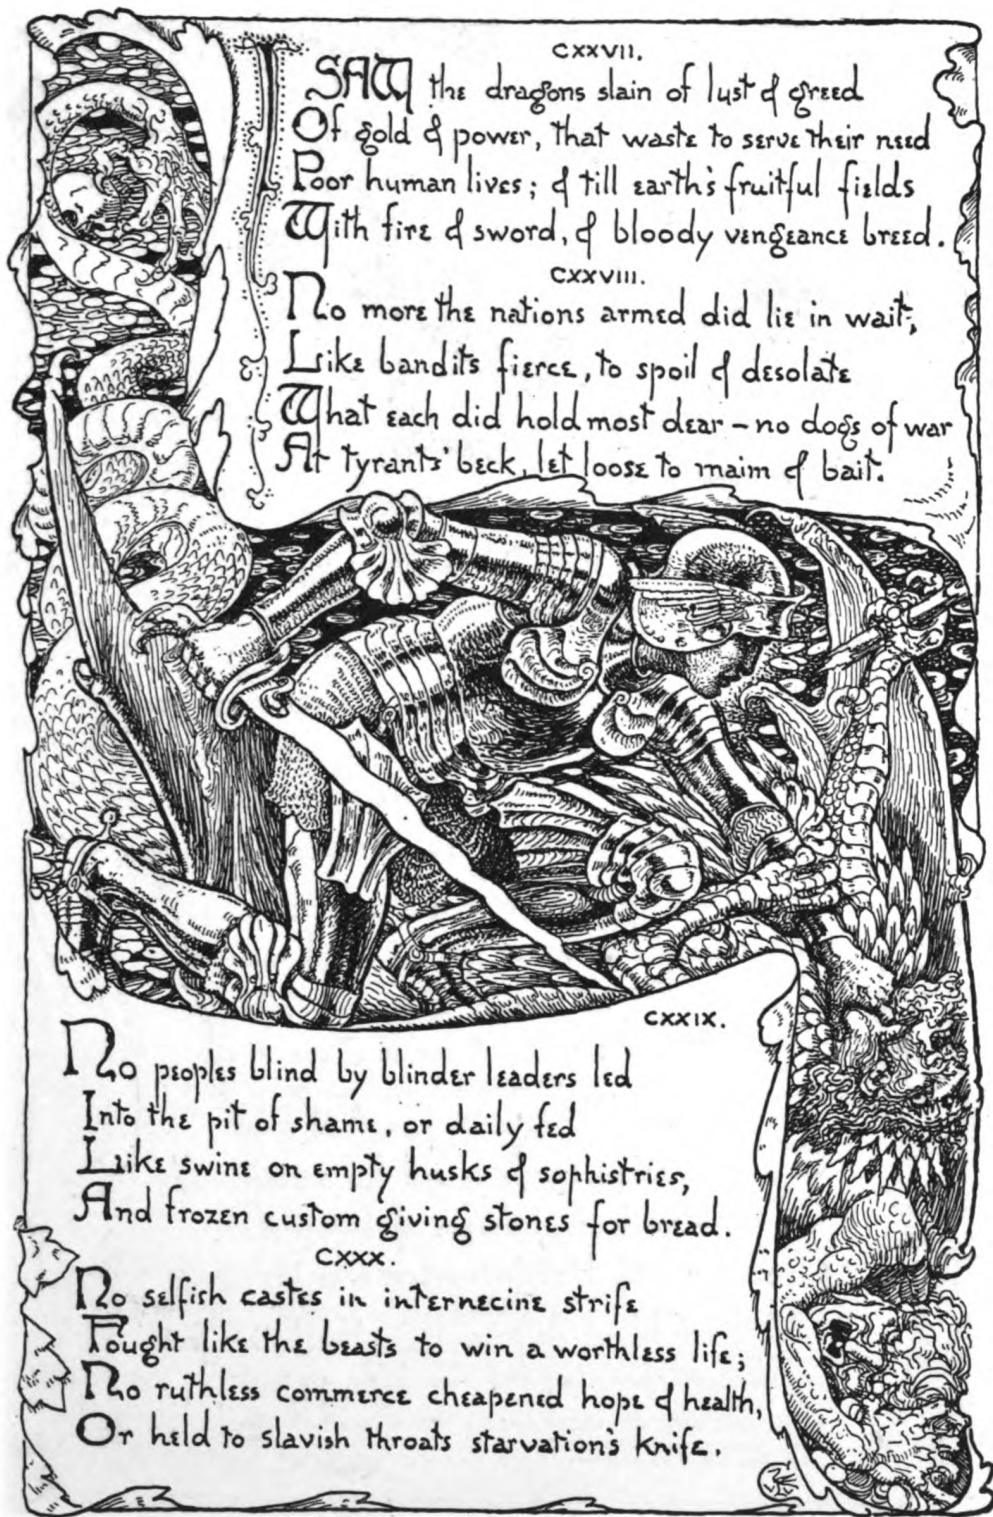 CXXVII.
I SAW the dragons slain of lust & greed
Of gold & power, that waste to serve their need
Poor human lives; & till earth's fruitful fields
With fire & sword, & bloody vengeance breed.
CXXVIII.
No more the nations armed did lie in wait,
Like bandits fierce, to spoil & desolate
What each did hold most dear – no dogs of war
At tyrants' beck, let loose to maim & bait.
CXXIX.
No peoples blind by blinder leaders led
Into the pit of shame, or daily fed
Like swine on empty husks & sophistries,
And frozen custom giving stones for bread.
CXXX.
No selfish castes in internecine strife
Fought like the beasts to win a worthless life;
No ruthless commerce cheapened hope & health,
Or held to slavish throats starvation's knife.